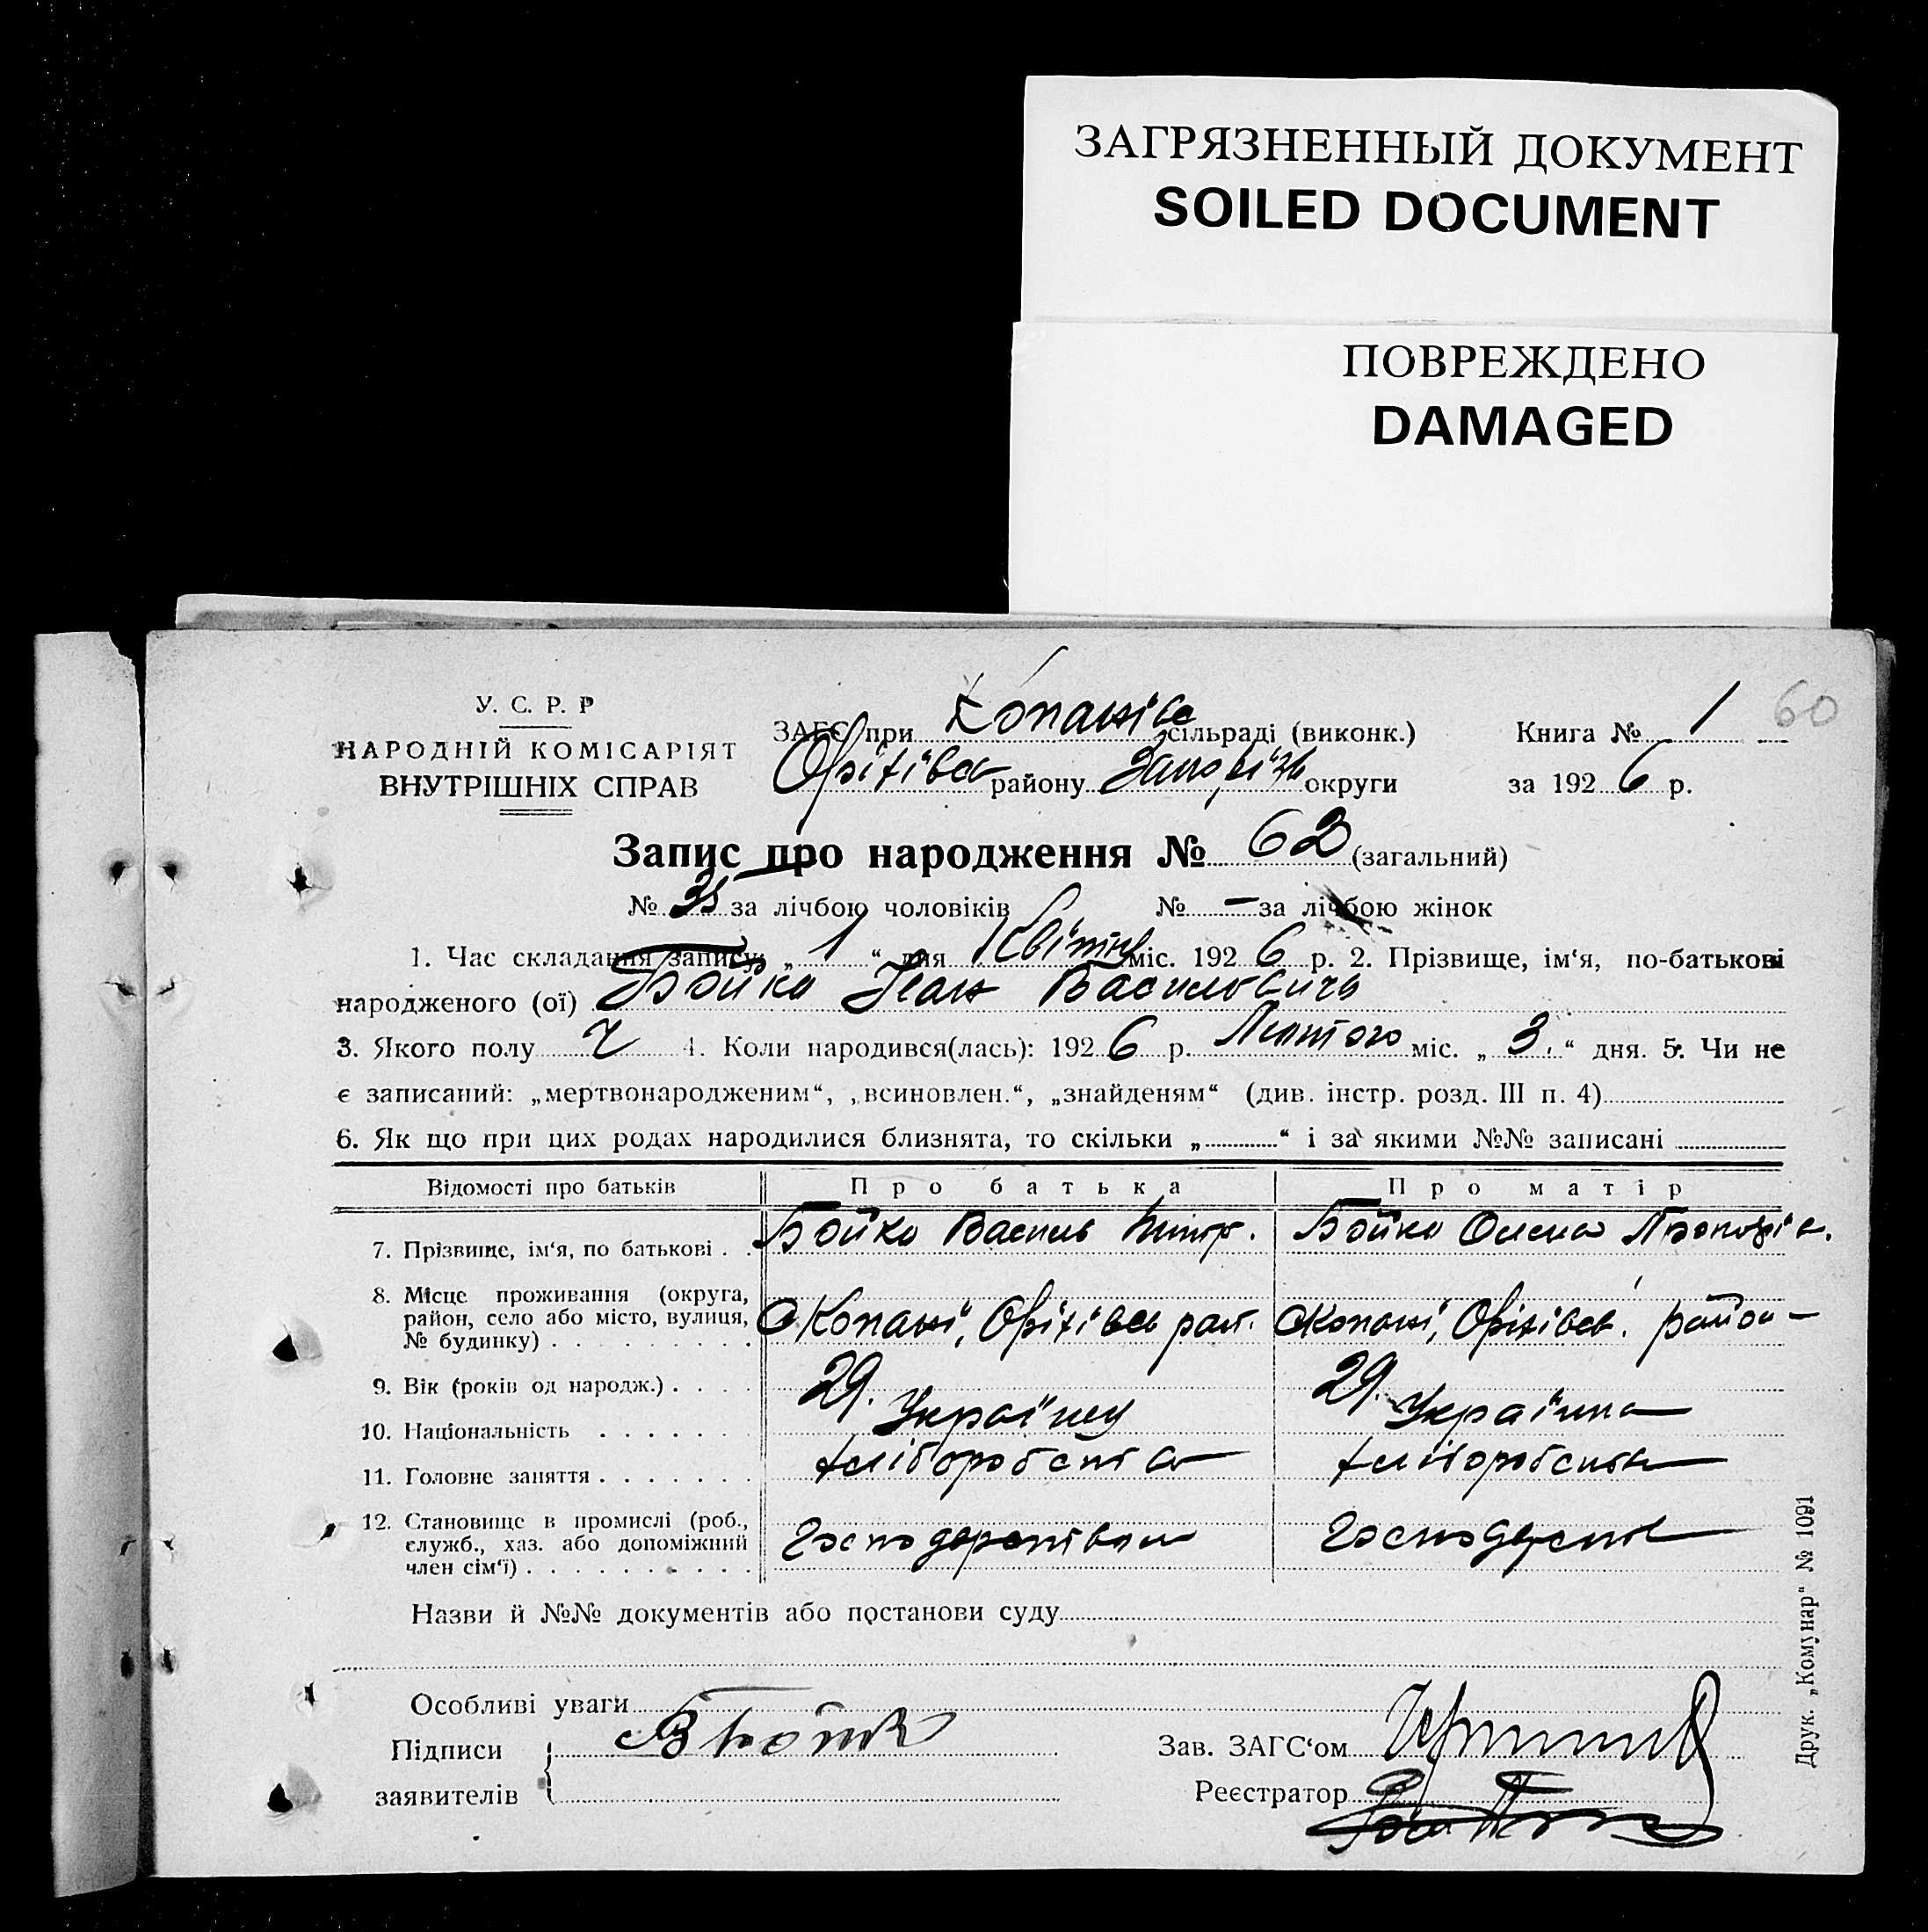 ЗАГРЯЗНЕННЫЙ ДОКУМЕНТ
SOILED DOCUMENT
ПОВРЕЖДЕНО
DAMAGED
У. С. Р. Р
НАРОДНІЙ КОМІСАРІЯТ
ВНУТРІШНІХ СПРАВ
ЗАГС при Копанів сільраді (виконк.)
Оріхівсь району округи
Книга № 1 60
за 1926 р.
Запис про народження № 62 (загальний)
№ за лічбою чоловіків № — за лічбою жінок
1. Час складання запису: „ 1 “ дня Квітня міс. 1926 р. 2. Прізвище, ім‘я, по-батькові
народженого (ої) Бойко Іван Васильович
3. Якого полу Ч 4. Коли народився(лась): 1926 р. Лютого міс. „ 3. “ дня. 5. Чи не
є записаний: „мертвонародженим“, „всиновлен.“, „знайденям“ (див. інстр. розд. III п. 4)
6. Як що при цих родах народилися близнята, то скільки „ “ і за якими №№ записані
Відомості про батьків Про батька Про матір
7. Прізвище, ім‘я, по батькові . . Бойко Василь Бойко Олена
8. Місце проживання (округа,
район, село або місто, вулиця,
№ будинку) . . . . . . . . . с Копані, Оріхівсь рай. с Копані, Оріхівсь. район
9. Вік (років од народж.) . . . . 29. 29.
10. Національність . . . . . . Українец Українка
11. Головне заняття . . . . . . . хліборобства хліборобства
12. Становище в промислі (роб.,
служб., хаз. або допоміжний
член сім‘ї) . . . . . . . . . . Господарством Господарств
Назви й №№ документів або постанови суду
Особливі уваги
Підписи
заявителів
В Бойко
Зав. ЗАГС‘ом
Реєстратор
Друк. „Комунар“ № 1091